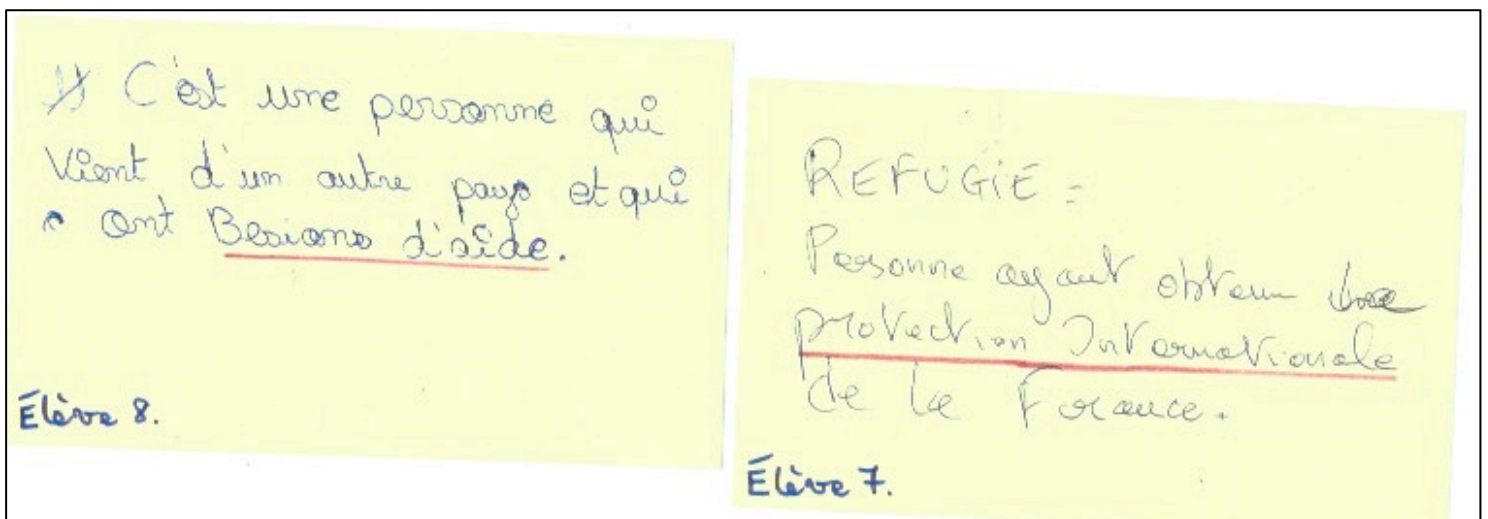 1) C'est une personne qui
vient d'un autre pays et qui
ont Besions d'aide.
Élève 8.
REFUGIE =
Personne ayant obtenu une
protection Internationale
de la France.
Élève 7.